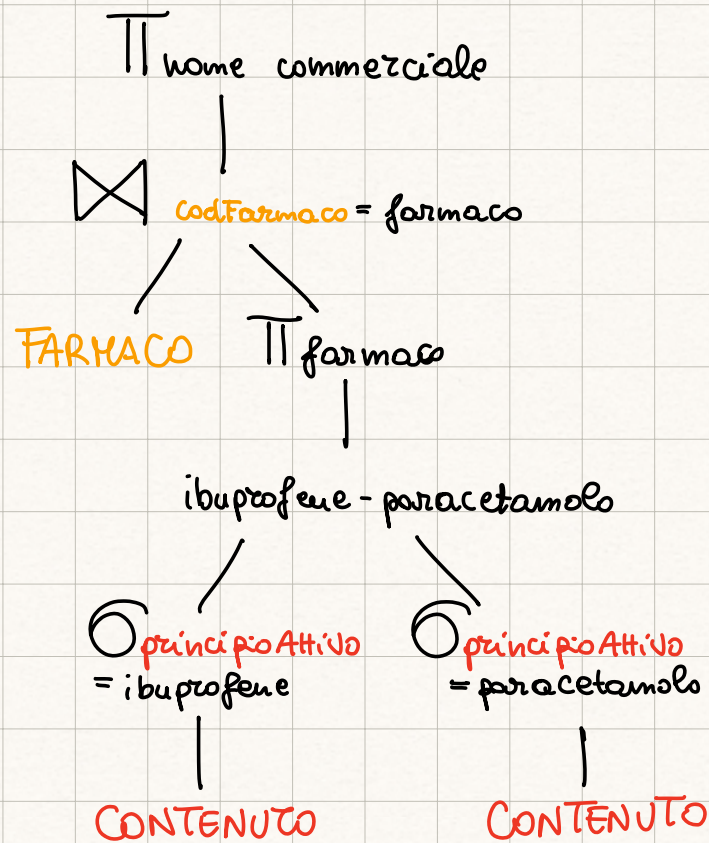 π nome commerciale
⋈ codFarmaco = farmaco
FARMACO π farmaco
ibuprofene - paracetamolo
σ principioAttivo σ principioAttivo
= ibuprofene = paracetamolo
CONTENUTO CONTENUTO